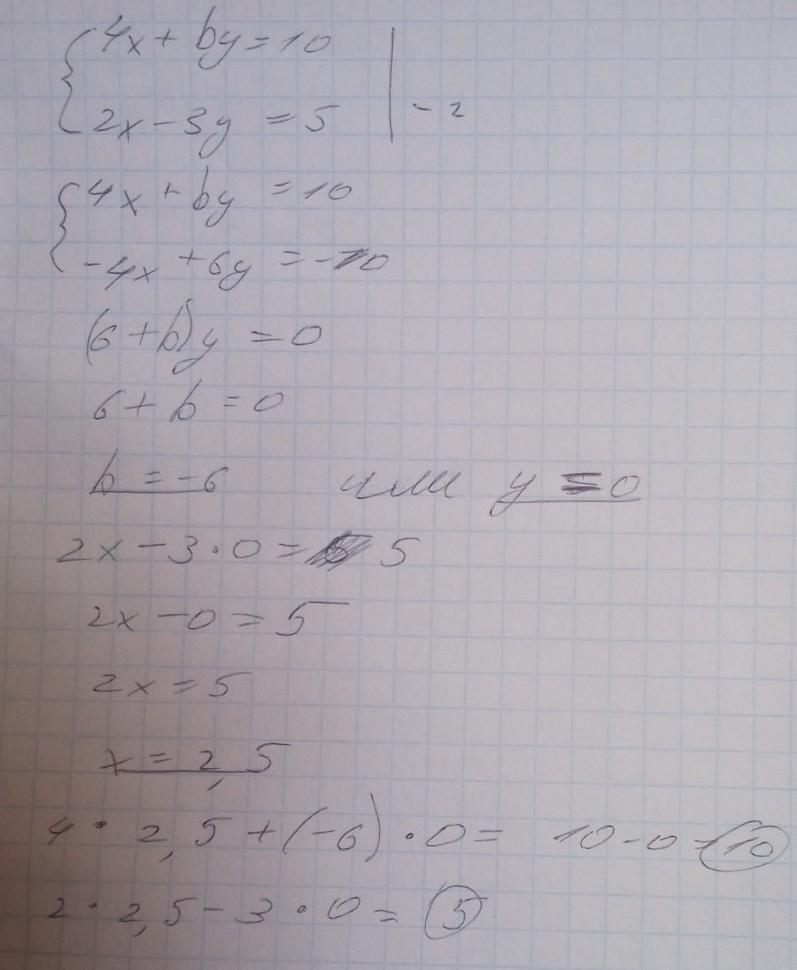 4x + by = 10
2x - 3y = 5 | - 2
4x + by = 10
-4x + 6y = -10
(6 + b)y = 0
6 + b = 0
b = -6 или y = 0
2x - 3 · 0 = 5
2x - 0 = 5
2x = 5
x = 2,5
4 · 2,5 + (-6) · 0 = 10 - 0 = 10
2 · 2,5 - 3 · 0 = 5